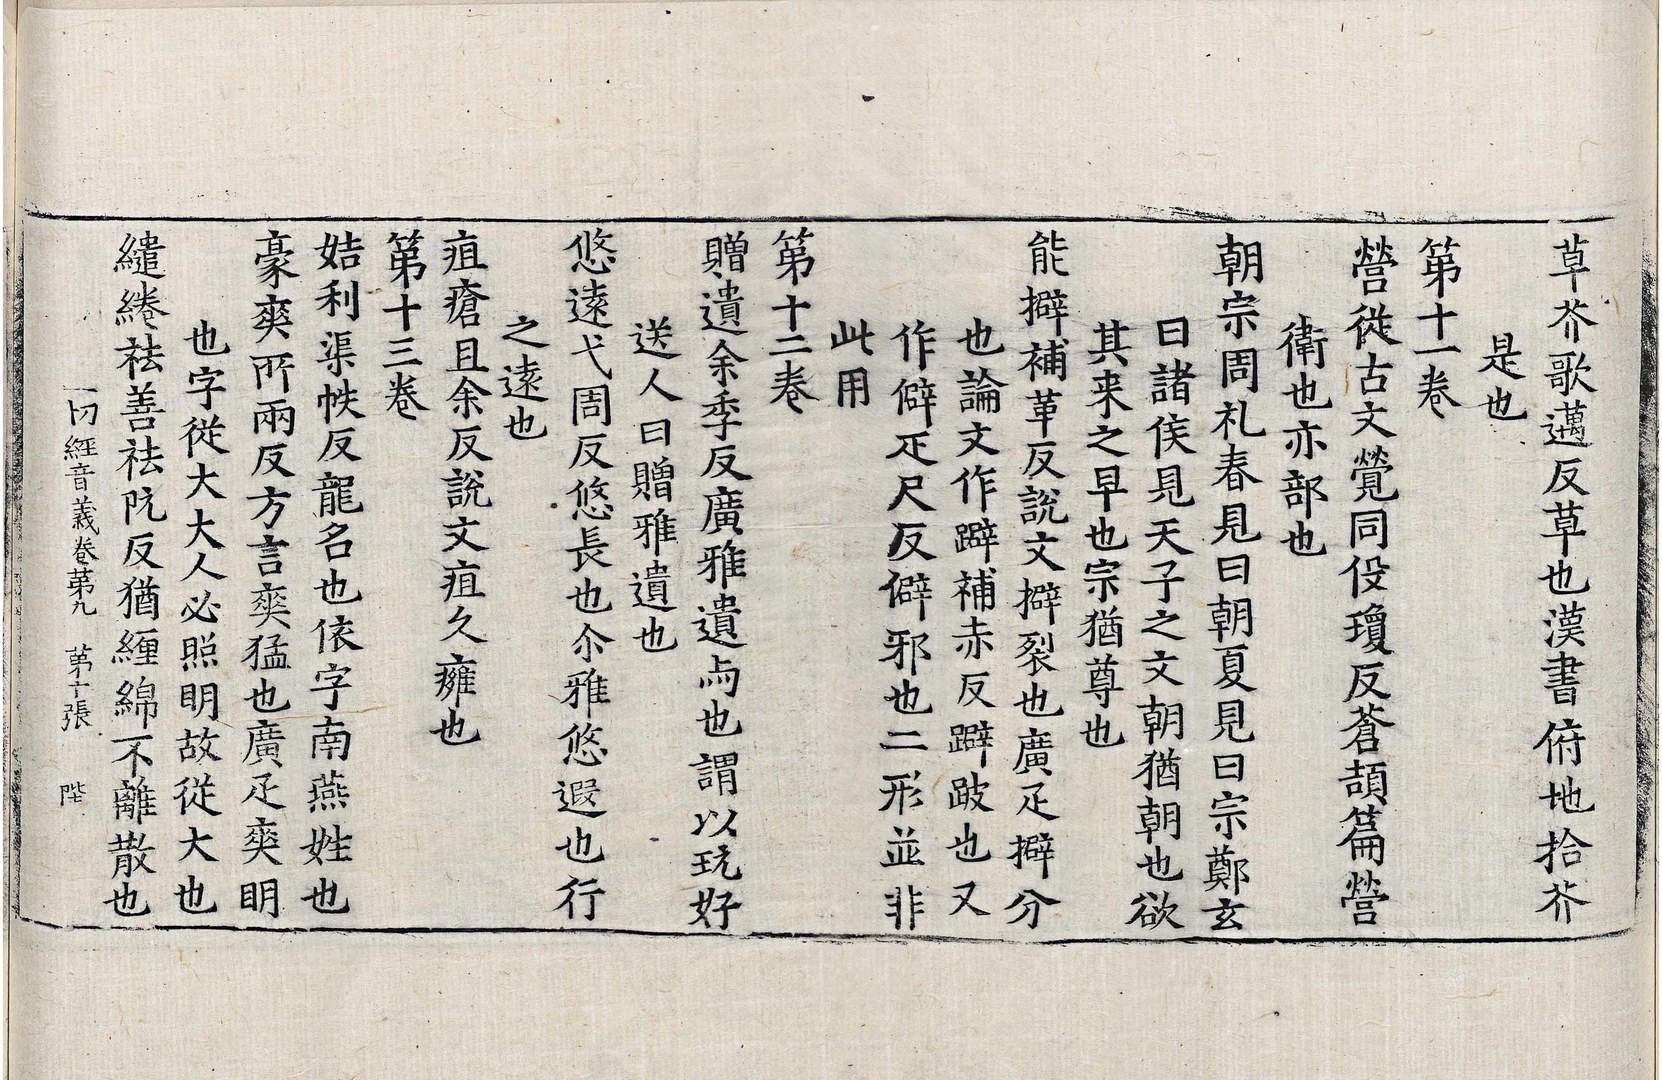 草芥歌邁反草也漢書俯地拾芥
是也
第十一卷
營從古文覮同役瓊反蒼頡篇營
衛也亦部也
朝宗周礼春見曰朝夏見曰宗鄭玄
曰諸侯見天子之文朝猶朝也欲
其来之早也宗猶尊也
能擗補革反說文擗裂也廣疋擗分
也論文作躃補赤反躃跛也又
作僻疋尺反僻邪也二形並非
此用
第十二卷
贈遺余季反廣雅遺与也謂以玩好
送人曰贈雅遺也
悠遠弋周反悠長也尒雅悠遐也行
之遠也
疽瘡且余反說文疽久癰也
第十三卷
姞利渠帙反龍名也依字南燕姓也
豪爽所兩反方言爽猛也廣疋爽明
也字從大大人必照明故從大也
繾綣祛善祛阮反猶纏綿不離散也
一切經音義卷第九 第十張 陛